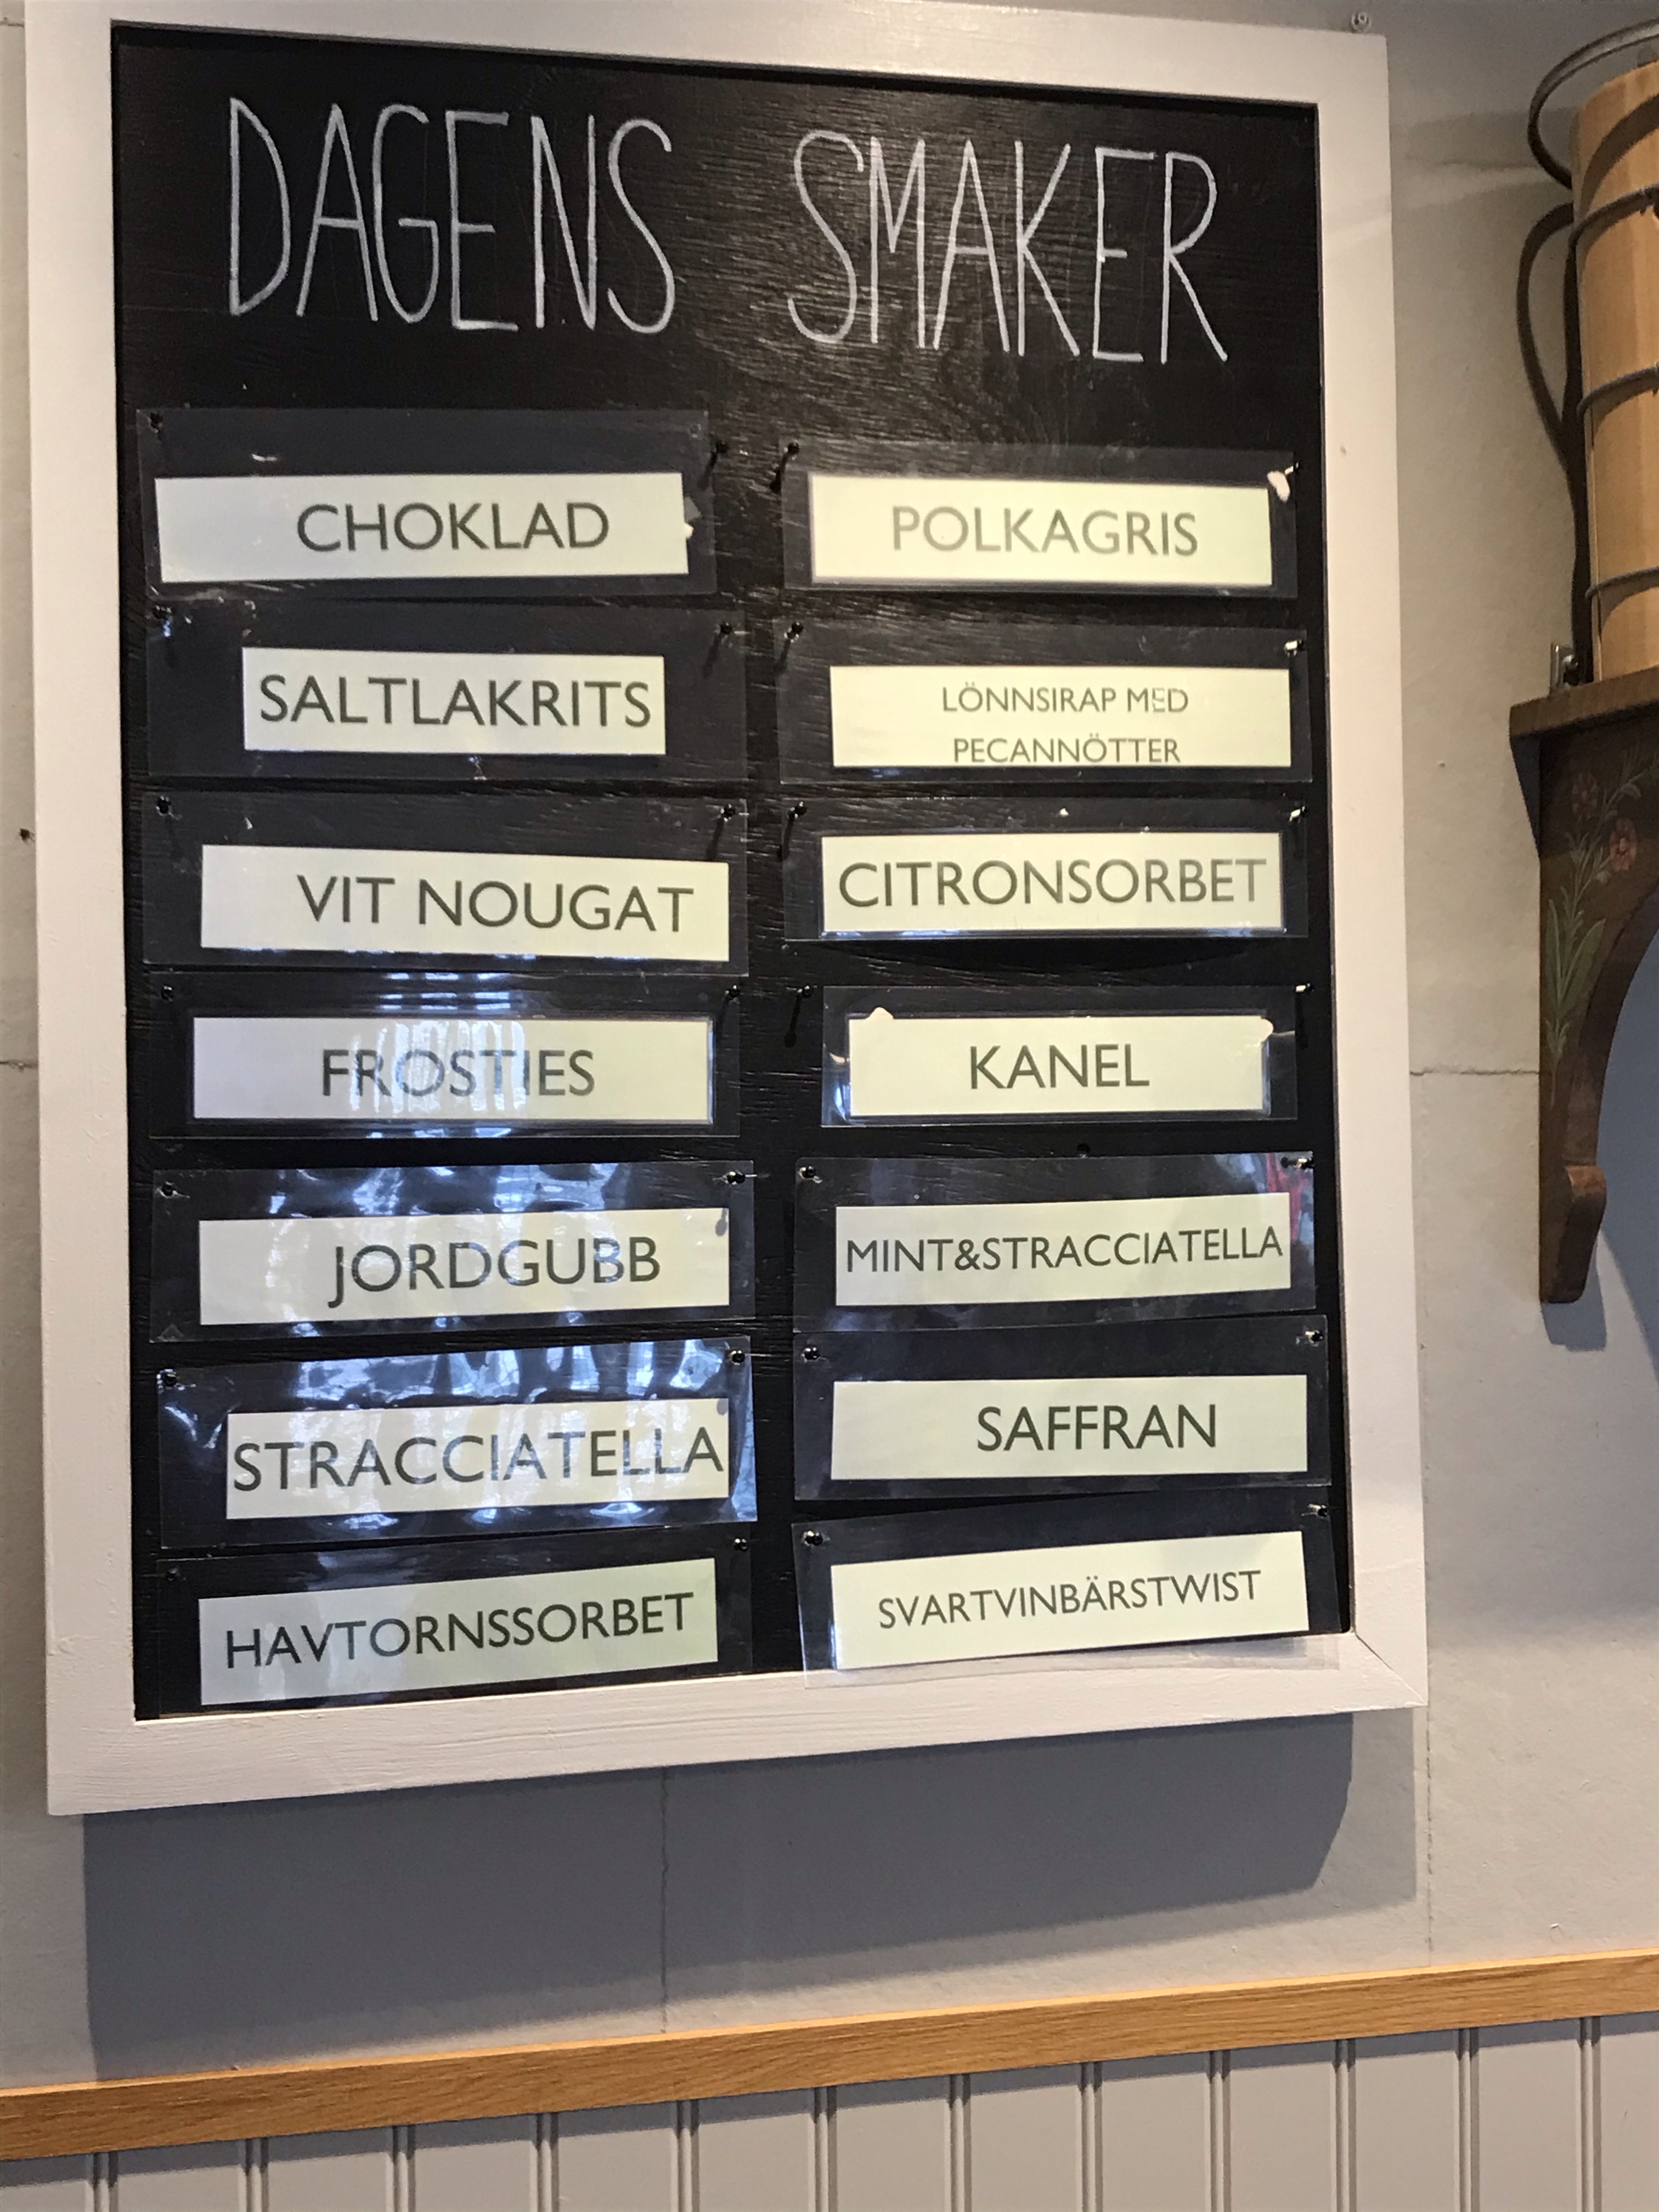 DAGENS SMAKER
CHOKLAD
SALTLAKRITS
VIT NOUGAT
FROSTIES
JORDGUBB
STRACCIATELLA
HAVTORNSSORBET
POLKAGRIS
LÖNNSIRAP MED
PECANNÖTTER
CITRONSORBET
KANEL
MINT&STRACCIATELLA
SAFFRAN
SVARTVINBÄRSTWIST